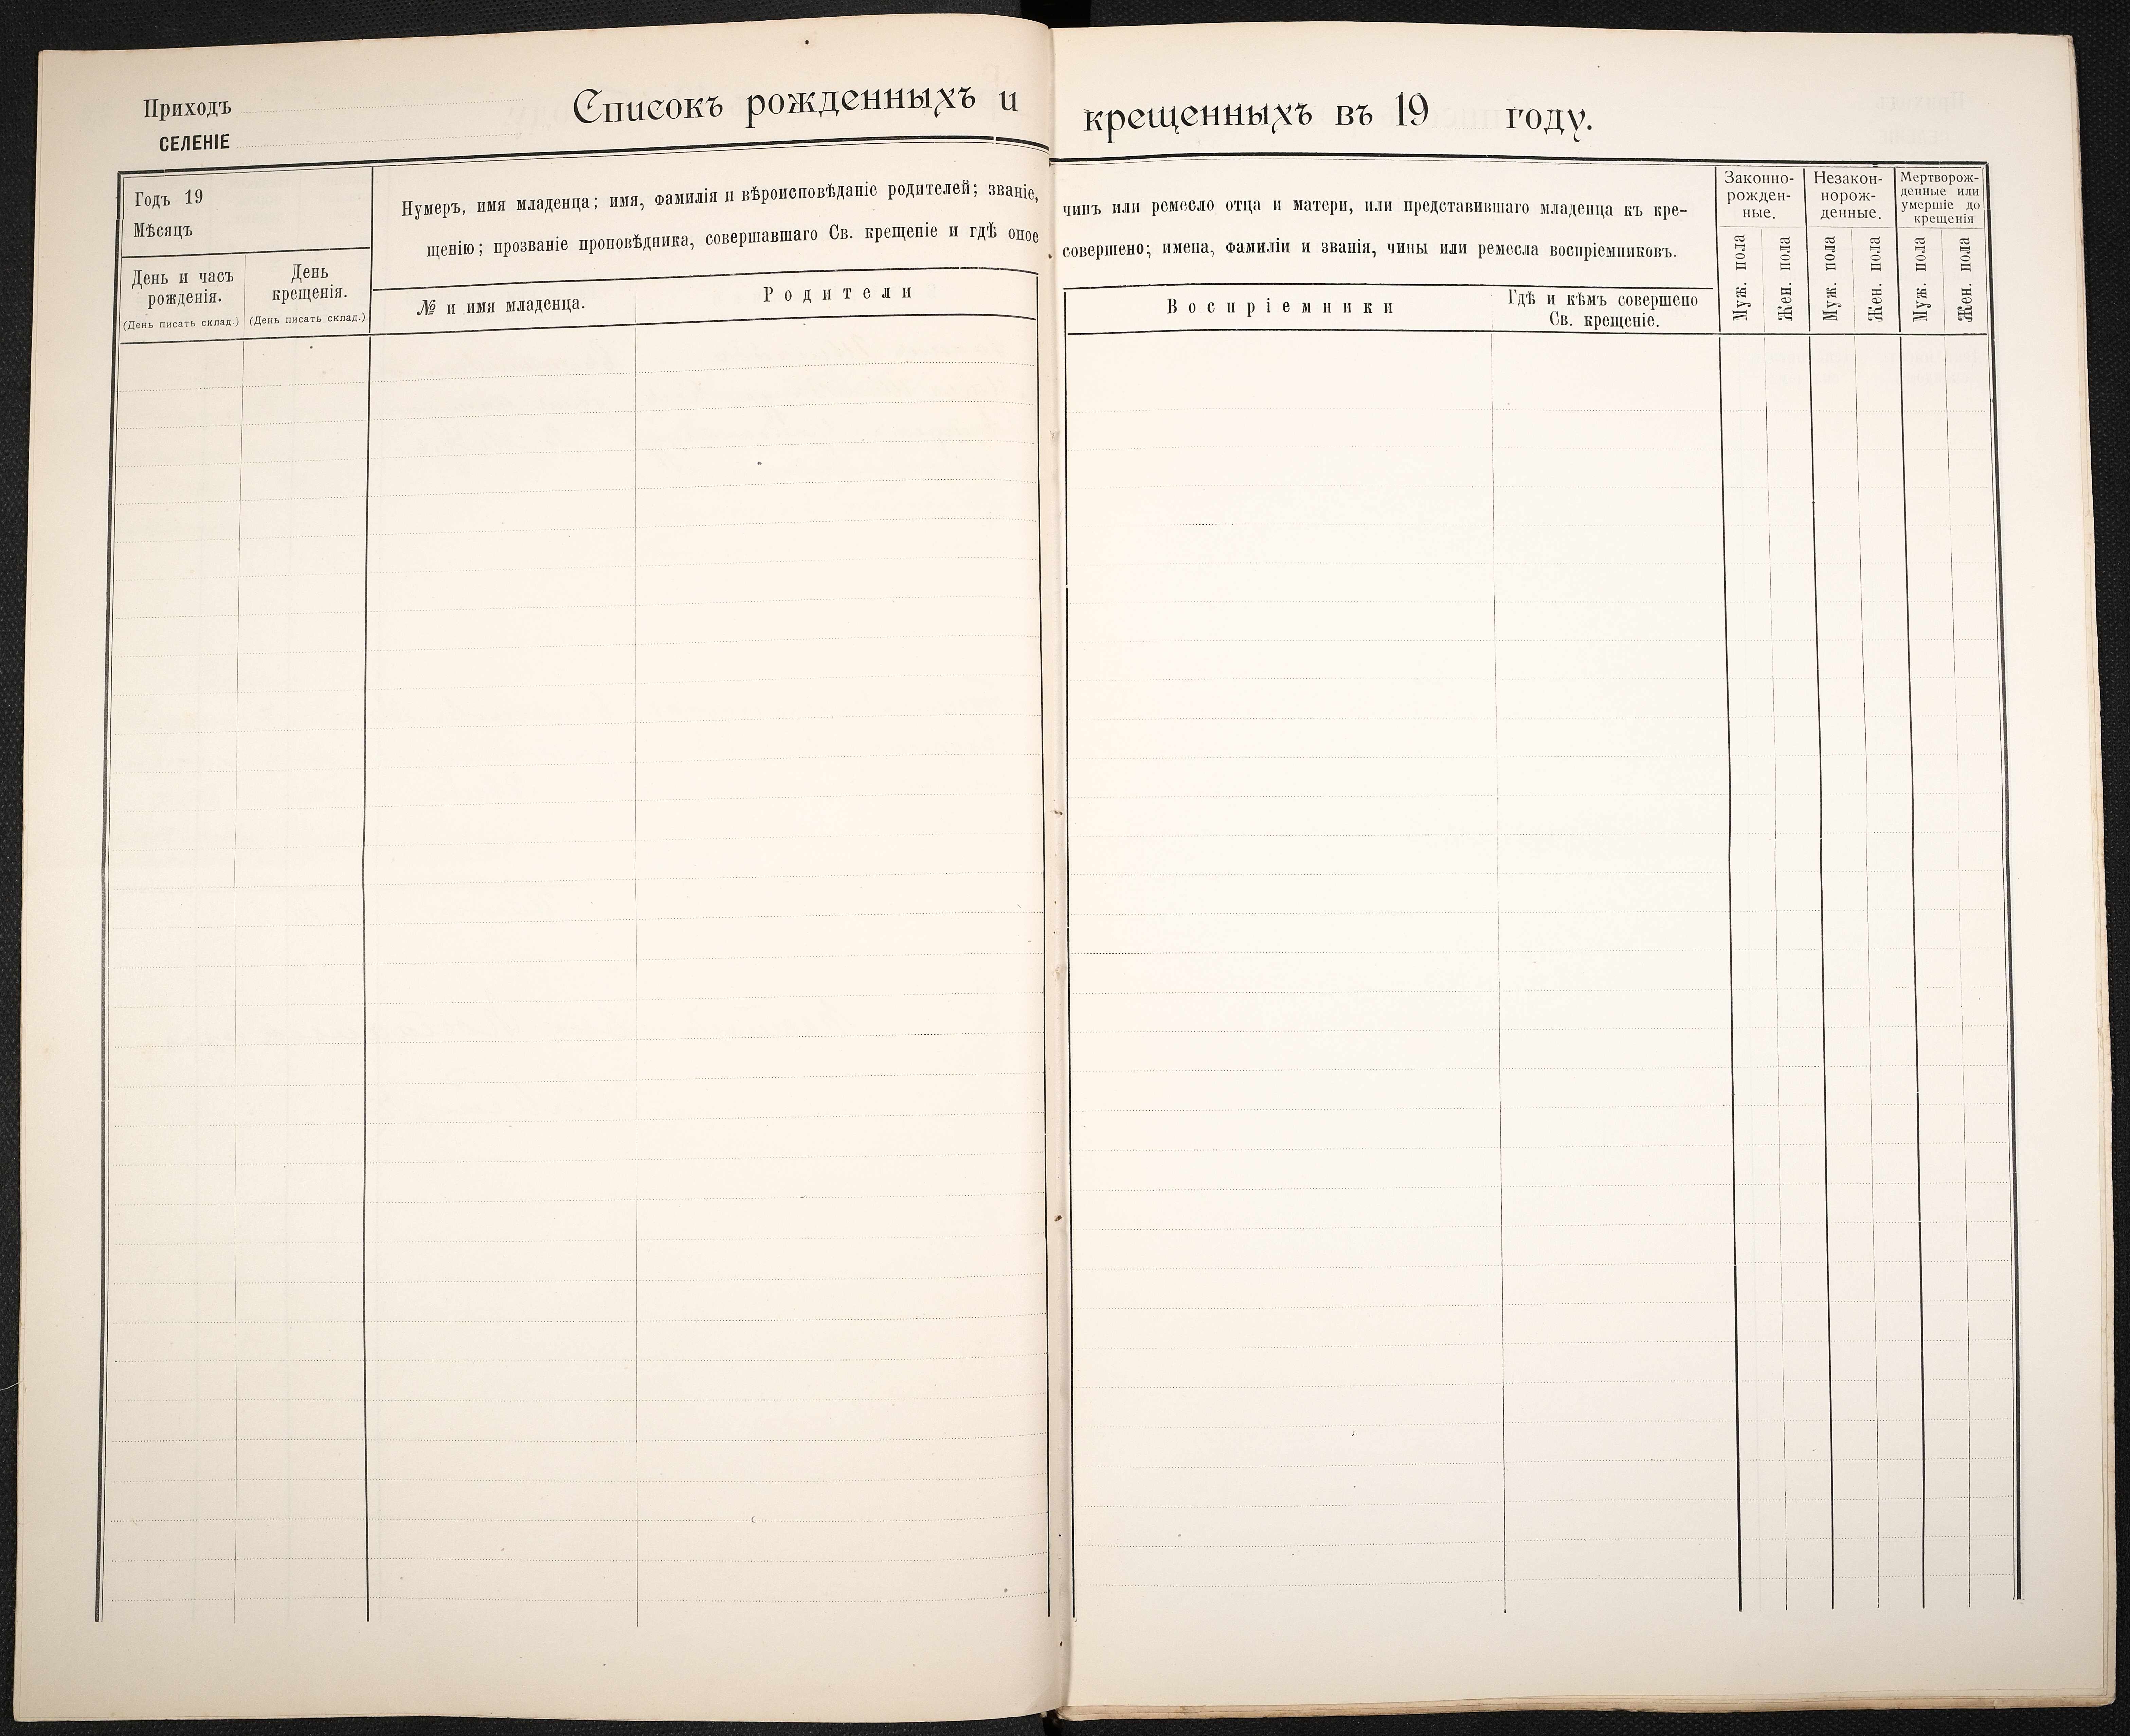 Приходъ
СЕЛЕНІЕ
Списокъ рожденныхъ и крещенныхъ въ 19 году.
Годъ 19
Мѣсяцъ
День и часъ
рожденія.
(День писать склад.)
День
крещенія.
(День писать склад.)
Нумеръ, имя младенца; имя, фамилія и вѣроисповѣданіе родителей; званіе,
щенію; прозваніе проповѣдника, совершавшаго Св. крещеніе и гдѣ оное
№ и имя младенца.
Родители
чинъ или ремесло отца и матери, или представившаго младенца къ кре-
совершено; имена, фамиліи и званія, чины или ремесла воспріемниковъ.
Воспріемники
Гдѣ и кѣмъ совершено
Св. крещеніе.
Законно-
рожден-
ные.
Муж. пола
Жен. пола
Незакон-
норож-
денные.
Муж. пола
Жен. пола
Мертворож-
денные или
умершіе до
крещенія
Муж. пола
Жен. пола